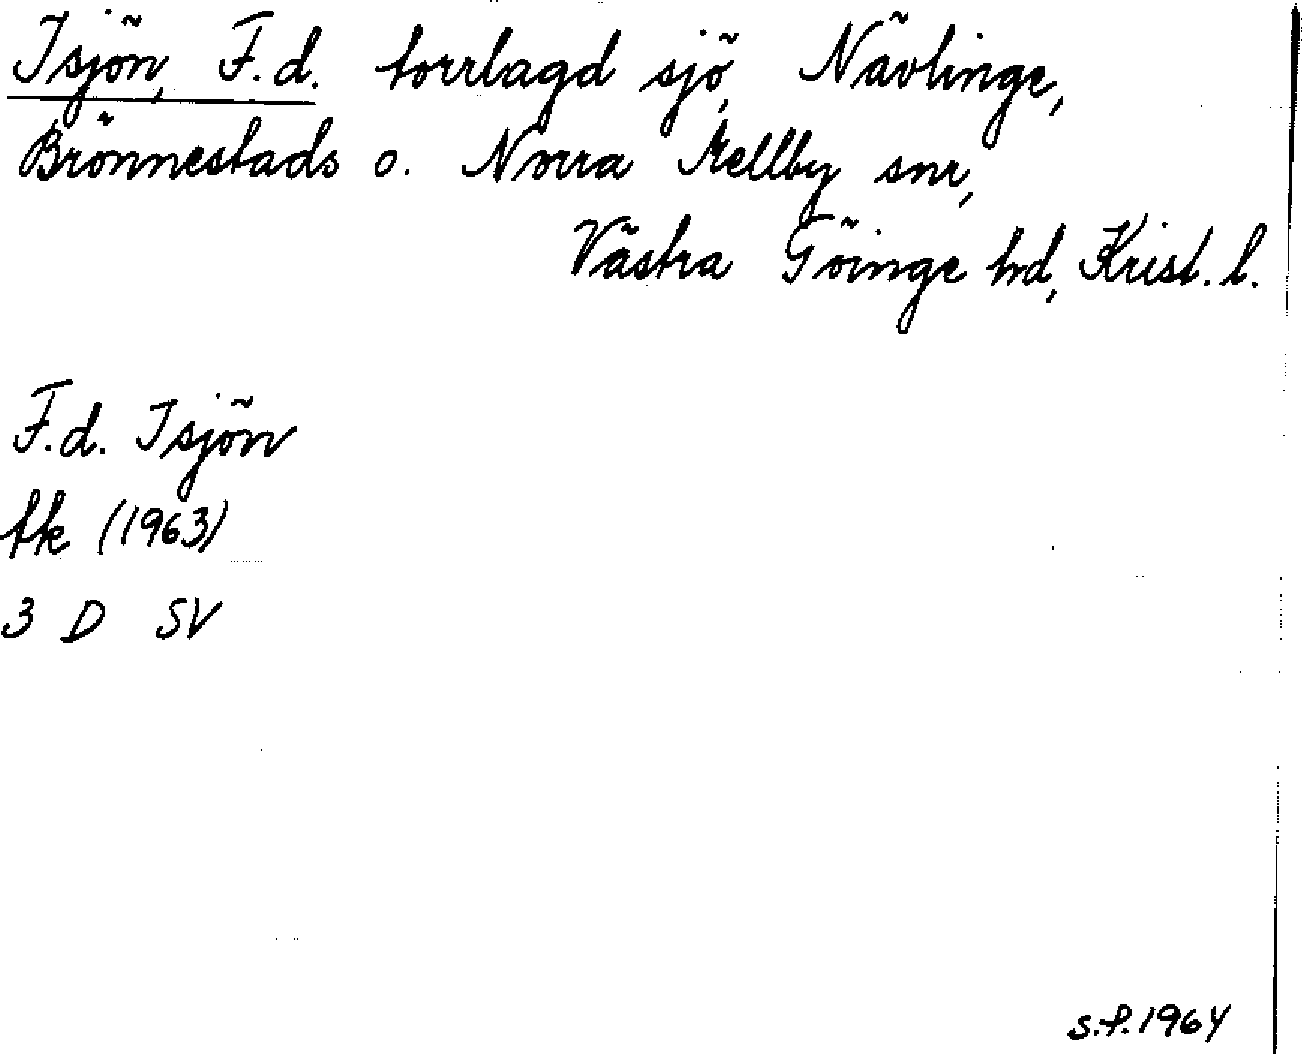 Isjön, F.d. torrlagd sjö, Nävlinge,
Brönnestads o. Norra Mellby snr,
Västra Göinge hd, Krist. l.
F.d. Isjön
tk (1963)
3 D SV
s.f. 1964